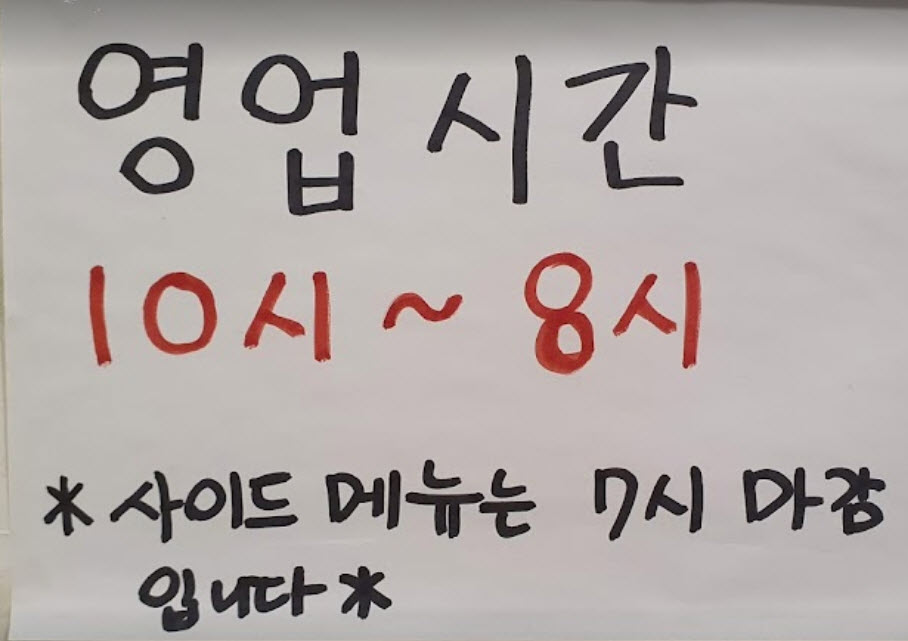 영업시간
10시 ~ 8시
* 사이드 메뉴는 7시 마감
입니다 *